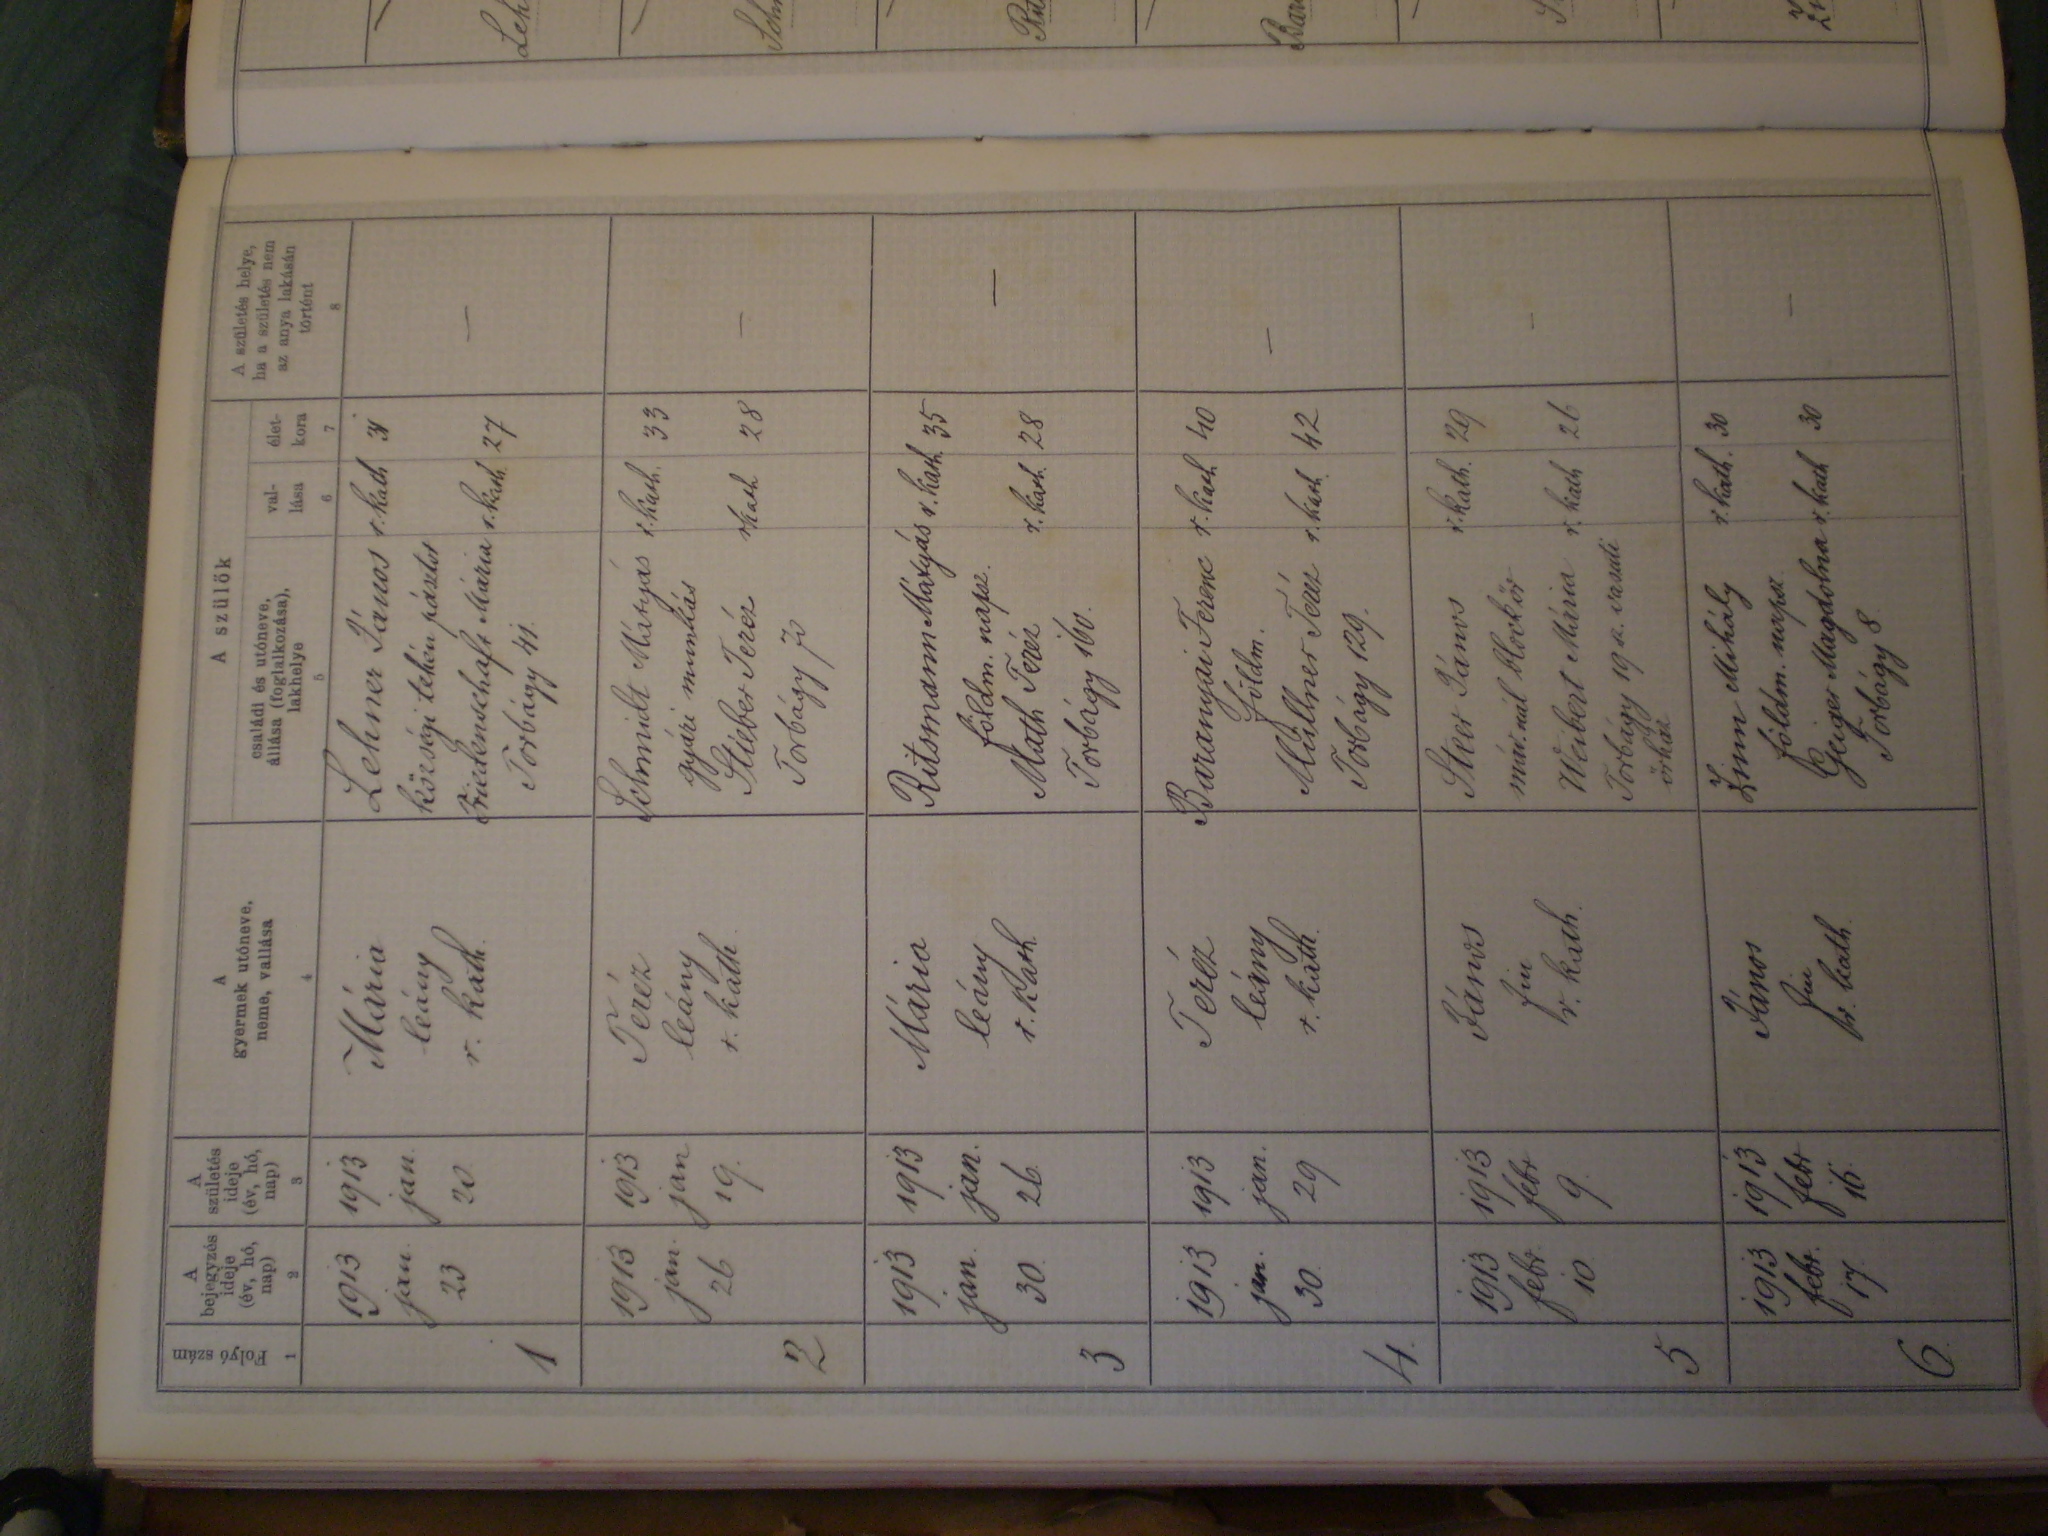 Folyó szám
1
A
bejegyzés
ideje
(év, hó,
nap)
2
A
születés
ideje
(év, hó,
nap)
3
A
gyermek utóneve,
neme, vallása
4
A szülők
családi és utóneve,
állása (foglalkozása),
lakhelye
5
val-
lása
6
élet-
kora
7
A születés helye,
ha a születés nem
az anya lakásán
történt
8
1
1913
jan.
23
1913
jan.
20
Mária
leány
r. kath.
Lehner János r. kath 31
községi tehén pásztor
Friedenschaft Mária r. kath. 27
Torbágy 41.
—
2
1913
jan.
26
1913
jan
19.
Teréz
leány
r. kath.
Schmidt Mátyás r. kath. 33
gyári munkás
Stieber Teréz rkath 28
Torbágy 70
—
3
1913
jan.
30.
1913
jan.
26.
Mária
leány
r. kath.
Ritsmann Mátyás r. kath. 35
földm. napsz.
Math Teréz r. kath. 28
Torbágy 160.
—
4.
1913
jan.
30.
1913
jan.
29
Teréz
leány
r. kath.
Baranyai Ferenc r. kath 40
földm.
Müllner Teréz r. kath. 42
Torbágy 129.
—
5
1913
febr.
10
1913
febr
9.
János
fiu
r. kath.
Steer János r. kath. 29
máv. nál blockőr
Weibert Mária r. kath 26
Torbágy 19 a. vasuti
őrház
—
6.
1913
febr.
17.
1913
febr
16.
János
fiu
r. kath.
Zinn Mihály r. kath. 30
földm. napsz
Geiger Magdolna r. kath 30
Torbágy 8.
—
Leh